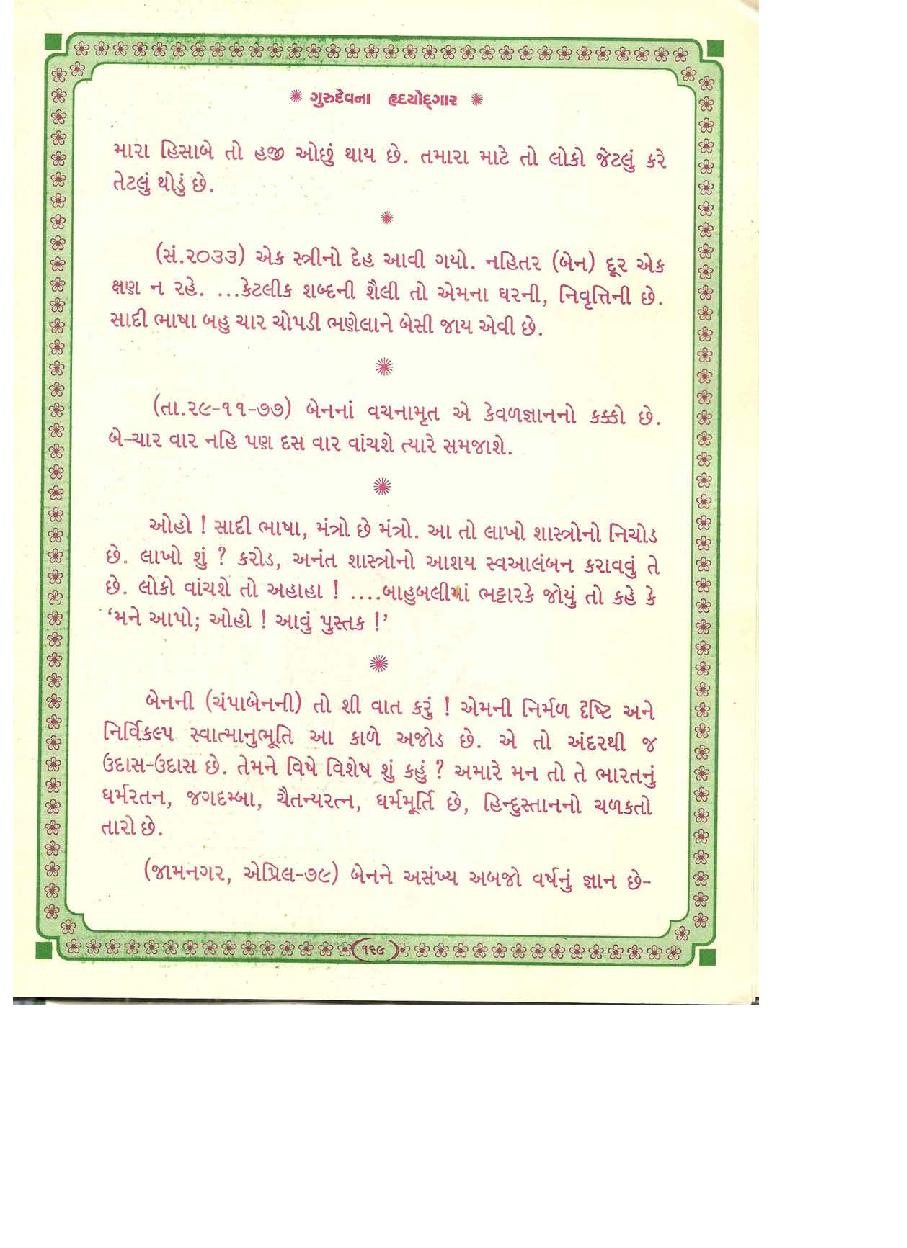 ✺ ગુરુદેવના હૃદયોદ્ગાર ✺
મારા હિસાબે તો હજી ઓછું થાય છે. તમારા માટે તો લોકો જેટલું કરે
તેટલું થોડું છે.
✺
(સં.૨૦૩૩) એક સ્ત્રીનો દેહ આવી ગયો. નહિતર (બેન) દૂર એક
ક્ષણ ન રહે. ...કેટલીક શબ્દની શૈલી તો એમના ઘરની, નિવૃત્તિની છે.
સાદી ભાષા બહુ ચાર ચોપડી ભણેલાને બેસી જાય એવી છે.
✺
(તા.૨૯-૧૧-૭૭) બેનનાં વચનામૃત એ કેવળજ્ઞાનનો કક્કો છે.
બે-ચાર વાર નહિ પણ દસ વાર વાંચશે ત્યારે સમજાશે.
✺
ઓહો ! સાદી ભાષા, મંત્રો છે મંત્રો. આ તો લાખો શાસ્ત્રોનો નિચોડ
છે. લાખો શું ? કરોડ, અનંત શાસ્ત્રોનો આશય સ્વઆલંબન કરાવવું તે
છે. લોકો વાંચશે તો અહાહા ! ....બાહુબલીમાં ભટ્ટારકે જોયું તો કહે કે
‘મને આપો; ઓહો ! આવું પુસ્તક !’
✺
બેનની (ચંપાબેનની) તો શી વાત કરું ! એમની નિર્મળ દૃષ્ટિ અને
નિર્વિકલ્પ સ્વાત્માનુભૂતિ આ કાળે અજોડ છે. એ તો અંદરથી જ
ઉદાસ-ઉદાસ છે. તેમને વિષે વિશેષ શું કહું ? અમારે મન તો તે ભારતનું
ધર્મરતન, જગદમ્બા, ચૈતન્યરત્ન, ધર્મમૂર્તિ છે, હિન્દુસ્તાનનો ચળકતો
તારો છે.
(જામનગર, એપ્રિલ-૭૯) બેનને અસંખ્ય અબજો વર્ષનું જ્ઞાન છે-
૧૨૯